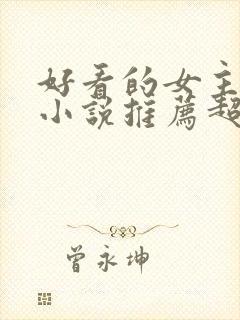 好看的女主
小说推荐超
曾永坤